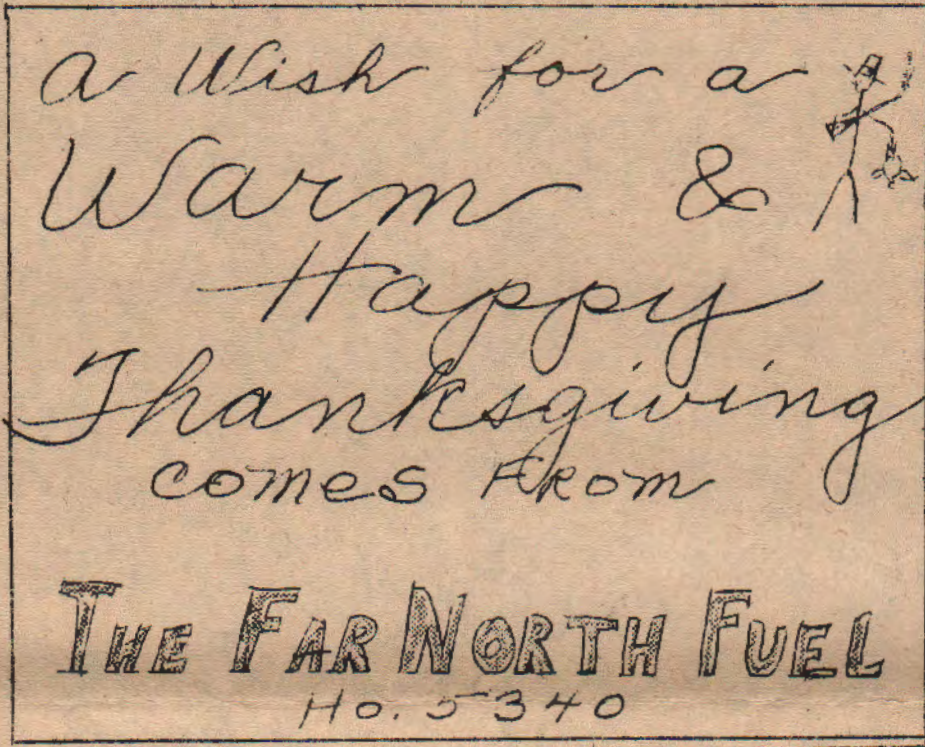 a Wish for a
Warm &
Happy
Thanksgiving
comes From
THE FAR NORTH FUEL
Ho. 5340